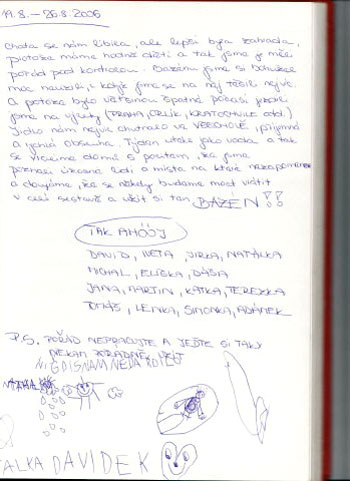 19.8. – 26.8. 2006
Chata se nám líbila, ale lepší byla zahrada,
protože máme hodně dětí a tak jsme je měli
pořád pod kontrolou. Bazénu jsme si bohužel
moc neužili, i když jsme se na něj těšili nejvíc.
A protože bylo většinou špatné počasí, jezdili
jsme na výlety (PRAHA, ORLÍK, KRATOCHVÍLE atd.)
Jídlo nám nejvíc chutnalo ve příjemná
a rychlá obsluha. Týden utekl jako voda a tak
se vracíme domů s pocitem, že jsme
poznali úžasné lidi a místa na která nezapomeneme
a doufáme, že se někdy budeme moct vrátit
v celé sestavě a užít si ten BAZÉN!!
TAK AHÓÓJ
DAVID, IVETA, JIRKA, NATÁLKA
MICHAL, ELIŠKA, DÁŠA
JANA, MARTIN, KATKA, TEREZKA
TOMÁŠ, LENKA, SIMONKA, ADÁMEK
P.S. POŘÁD NEPRACUJTE A JEŠTĚ SI TAKY
NĚKAM POŘÁDNĚ
ALKA DAVIDEK